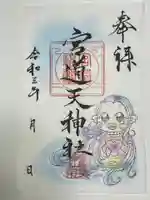 奉拝
宮道天神社
令和三年 月 日